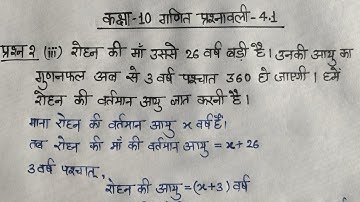 कक्षा-10 गणित प्रश्नावली-4.1
प्रश्न २ (iii) रोहन की माँ उससे 26 वर्ष बड़ी है। उनकी आयु का
गुणनफल अब से 3 वर्ष पश्चात 360 हो जाएगी। हमें
रोहन की वर्तमान आयु ज्ञात करनी है।
माना रोहन की वर्तमान आयु x वर्ष है।
तब रोहन की माँ की वर्तमान आयु = x+26
3 वर्ष पश्चात,
रोहन की आयु = (x+3) वर्ष